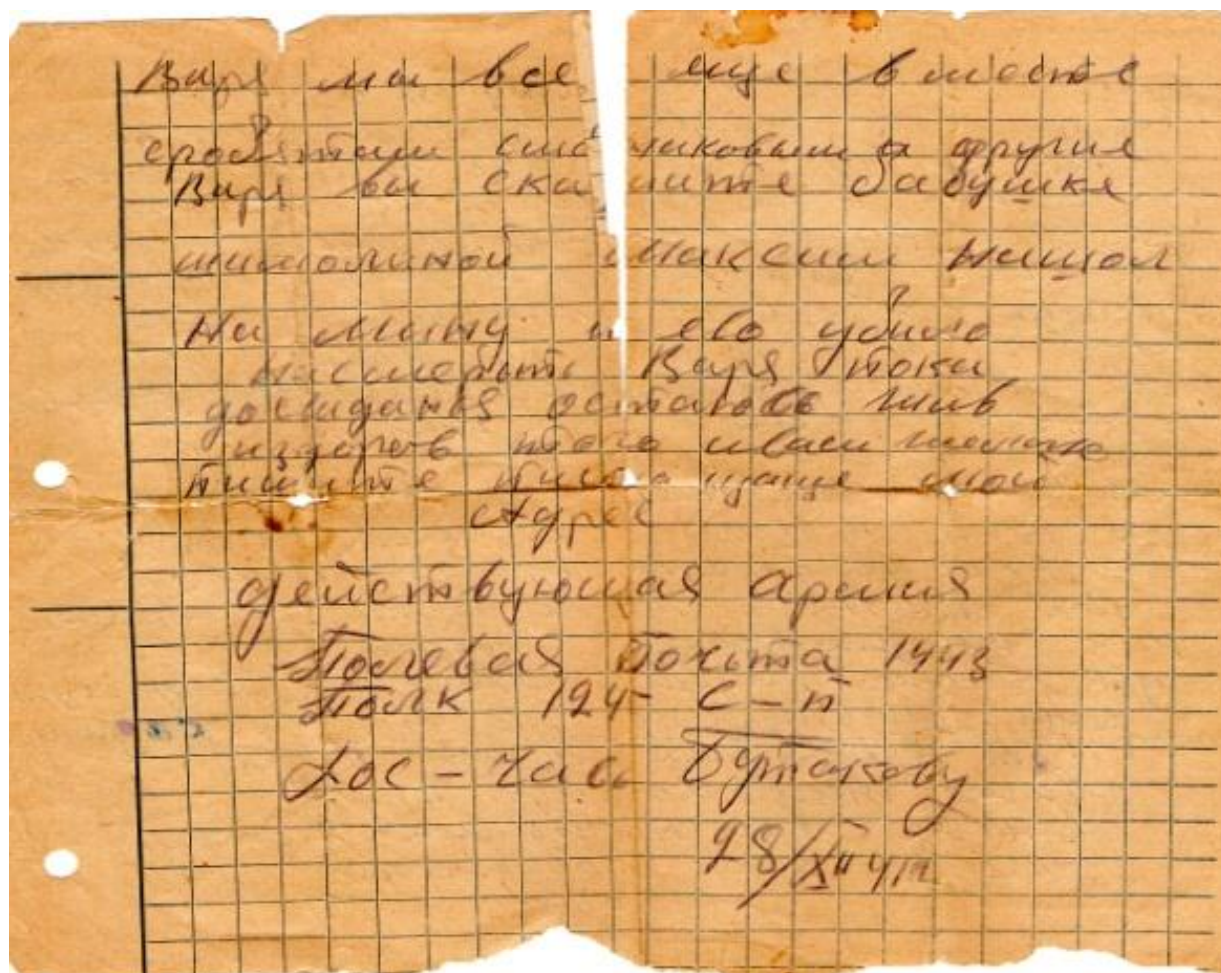 Варя мы все еще вместе
сребятами
Варя вы скажите бабушке
максим нашол
На мину и ево убило
насмерть Варя пока
досвиданя остаюсь жив
издоров того ивам желаю
пишите писма чаще мой
Адрес
действующая армия
Полевая почьта 1443
Полк 124 С-п
Хос-часть Бутакову
28/XII 41г